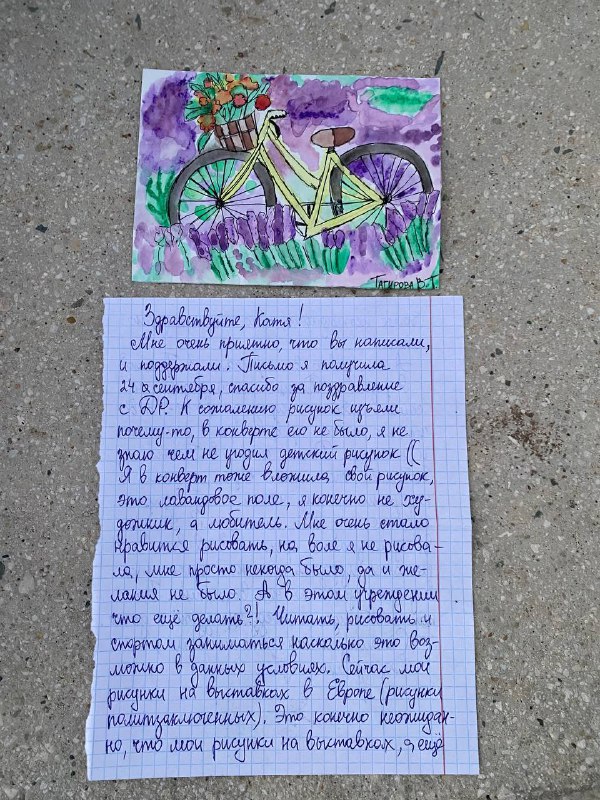 Тагирова В.Г
Здравствуйте, Катя!
Мне очень приятно, что вы написали,
и поддержали. Письмо я получила
24 сентября, спасибо за поздравление
с ДР. К сожалению рисунок изъяли
почему-то, в конверте его не было, я не
знаю чем не угодил детский рисунок ((
Я в конверт тоже вложила свой рисунок,
это лавандовое поле, я конечно не ху-
дожник, а любитель. Мне очень стало
нравится рисовать, на воле я не рисова-
ла, мне просто некогда было, да и же-
лания не было. А в этом учреждении
что ещё делать?! Читать, рисовать и
спортом заниматься насколько это воз-
можно в данных условиях. Сейчас мои
рисунки на выставках в Европе (рисунки
политзаключенных). Это конечно неожидан-
но, что мои рисунки на выставках, а ещё